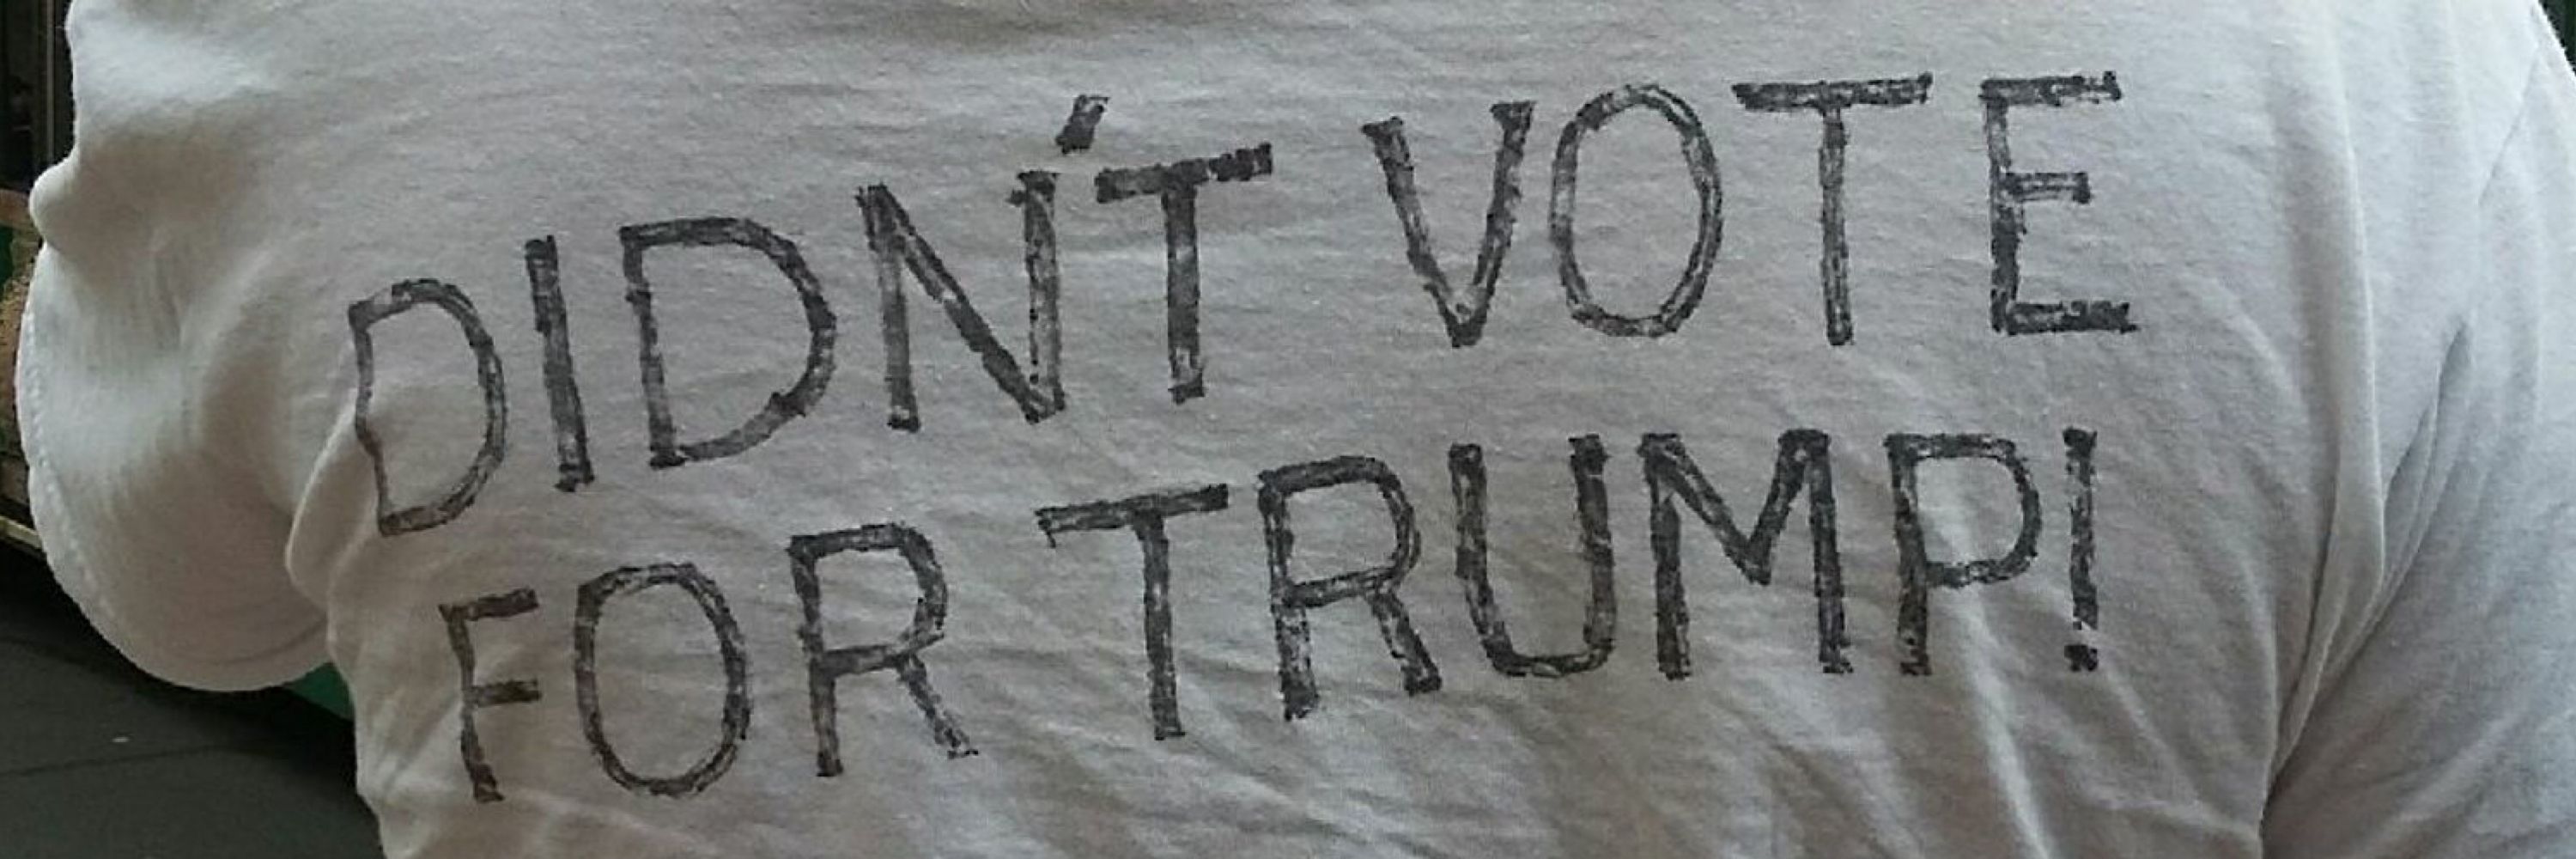 DIDN'T VOTE
FOR TRUMP!